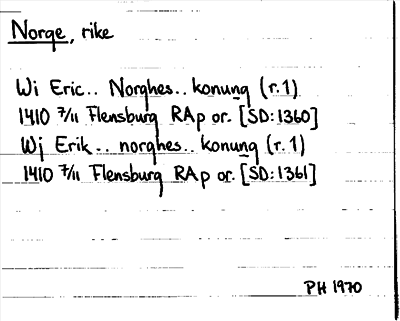 Norge, rike
Wi Eric.. Norghes.. konung (r.1)
1410 7/11 Flensburg RAp or. [SD:1360]
Wj Erik.. norghes.. konung (r.1)
1410 7/11 Flensburg RAp or. [SD:1361]
PH 1970